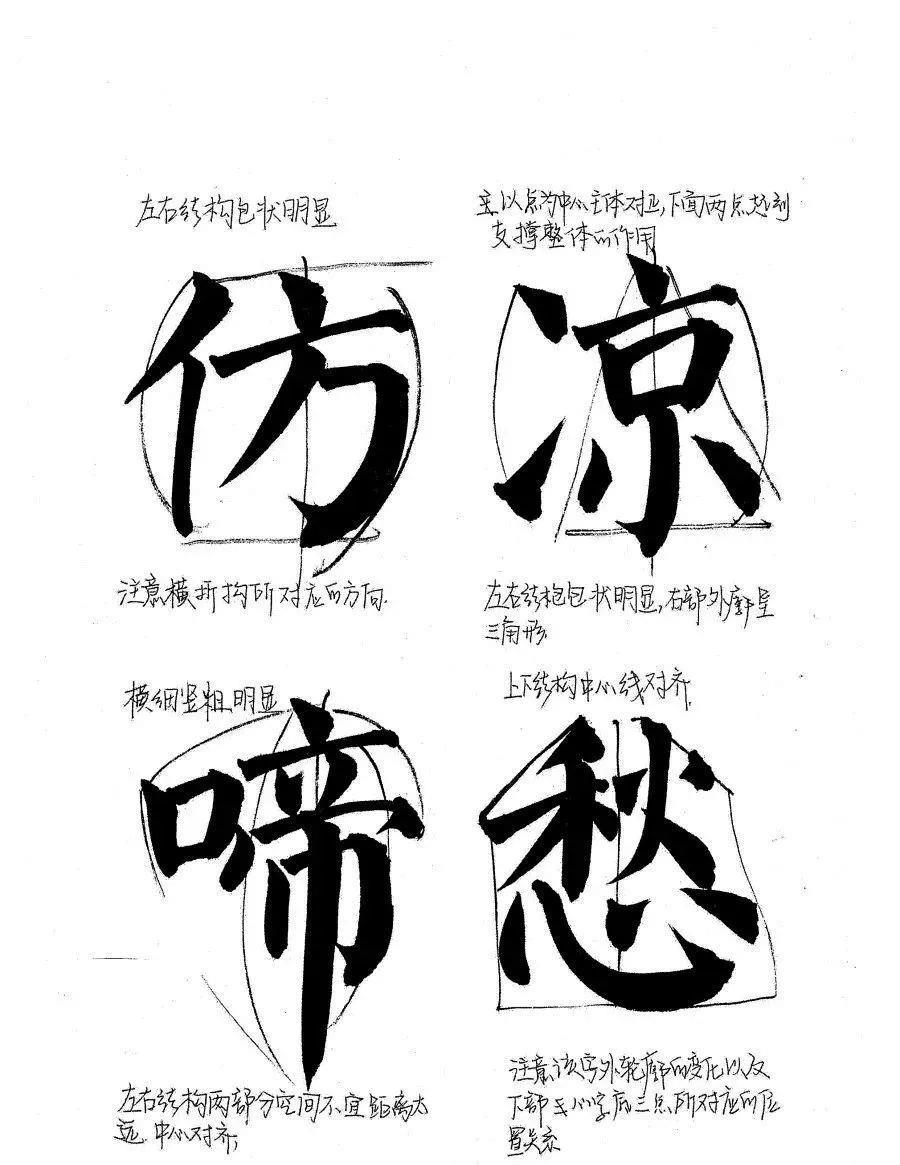 左右结构包状明显
仿
注意横折构所对应的方向.
主以点为中心主体对正,下面两点起到
支撑整体的作用
凉
左右结构包状明显,右部外廓呈
三角形.
横细竖粗明显
啼
左右结构两部分空间不宜距离太
远.中心对齐,
上下结构中心线对齐.
愁
注意该字外轮廓的变化以及
下部 心字底三点所对应的位
置关系